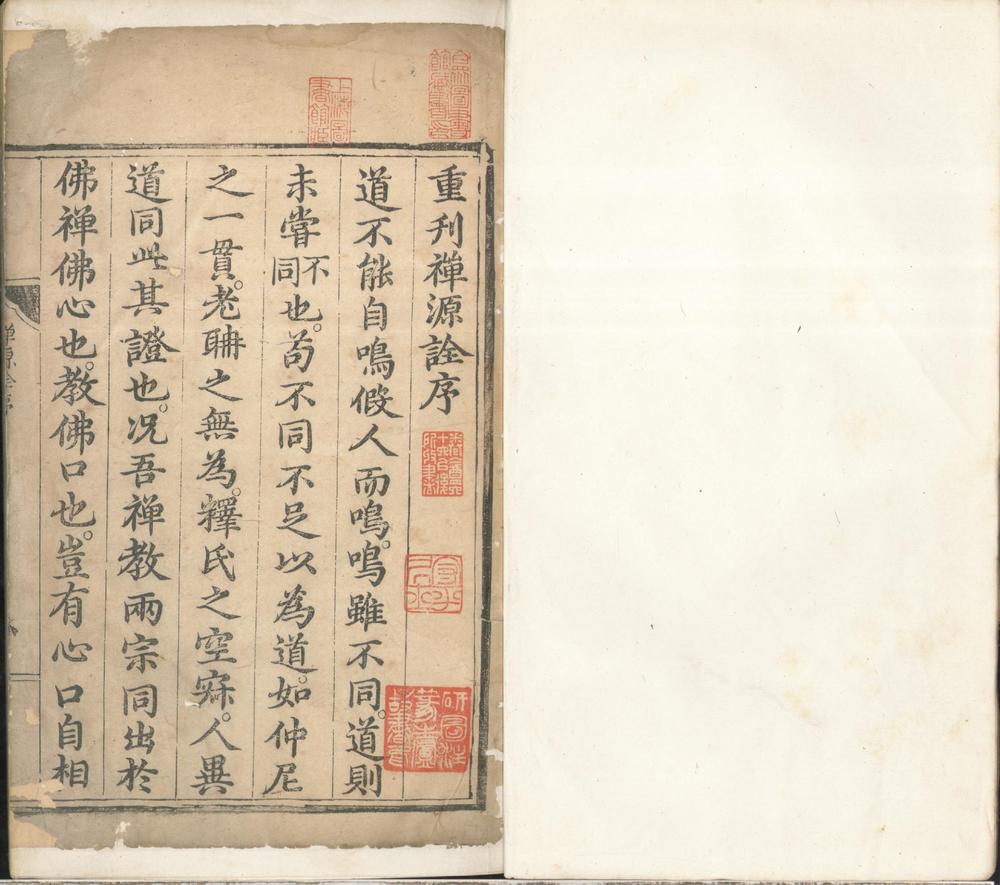 重刊禪源詮序
道不能自鳴假人而鳴。鳴雖不同。道則
未嘗不同也。苟不同不足以為道。如仲尼
之一貫。老聃之無為。釋氏之空寂。人異
道同此其證也。况吾禅教兩宗同出於
佛禅佛心也。教佛口也。豈有心口自相
上海圖書館藏